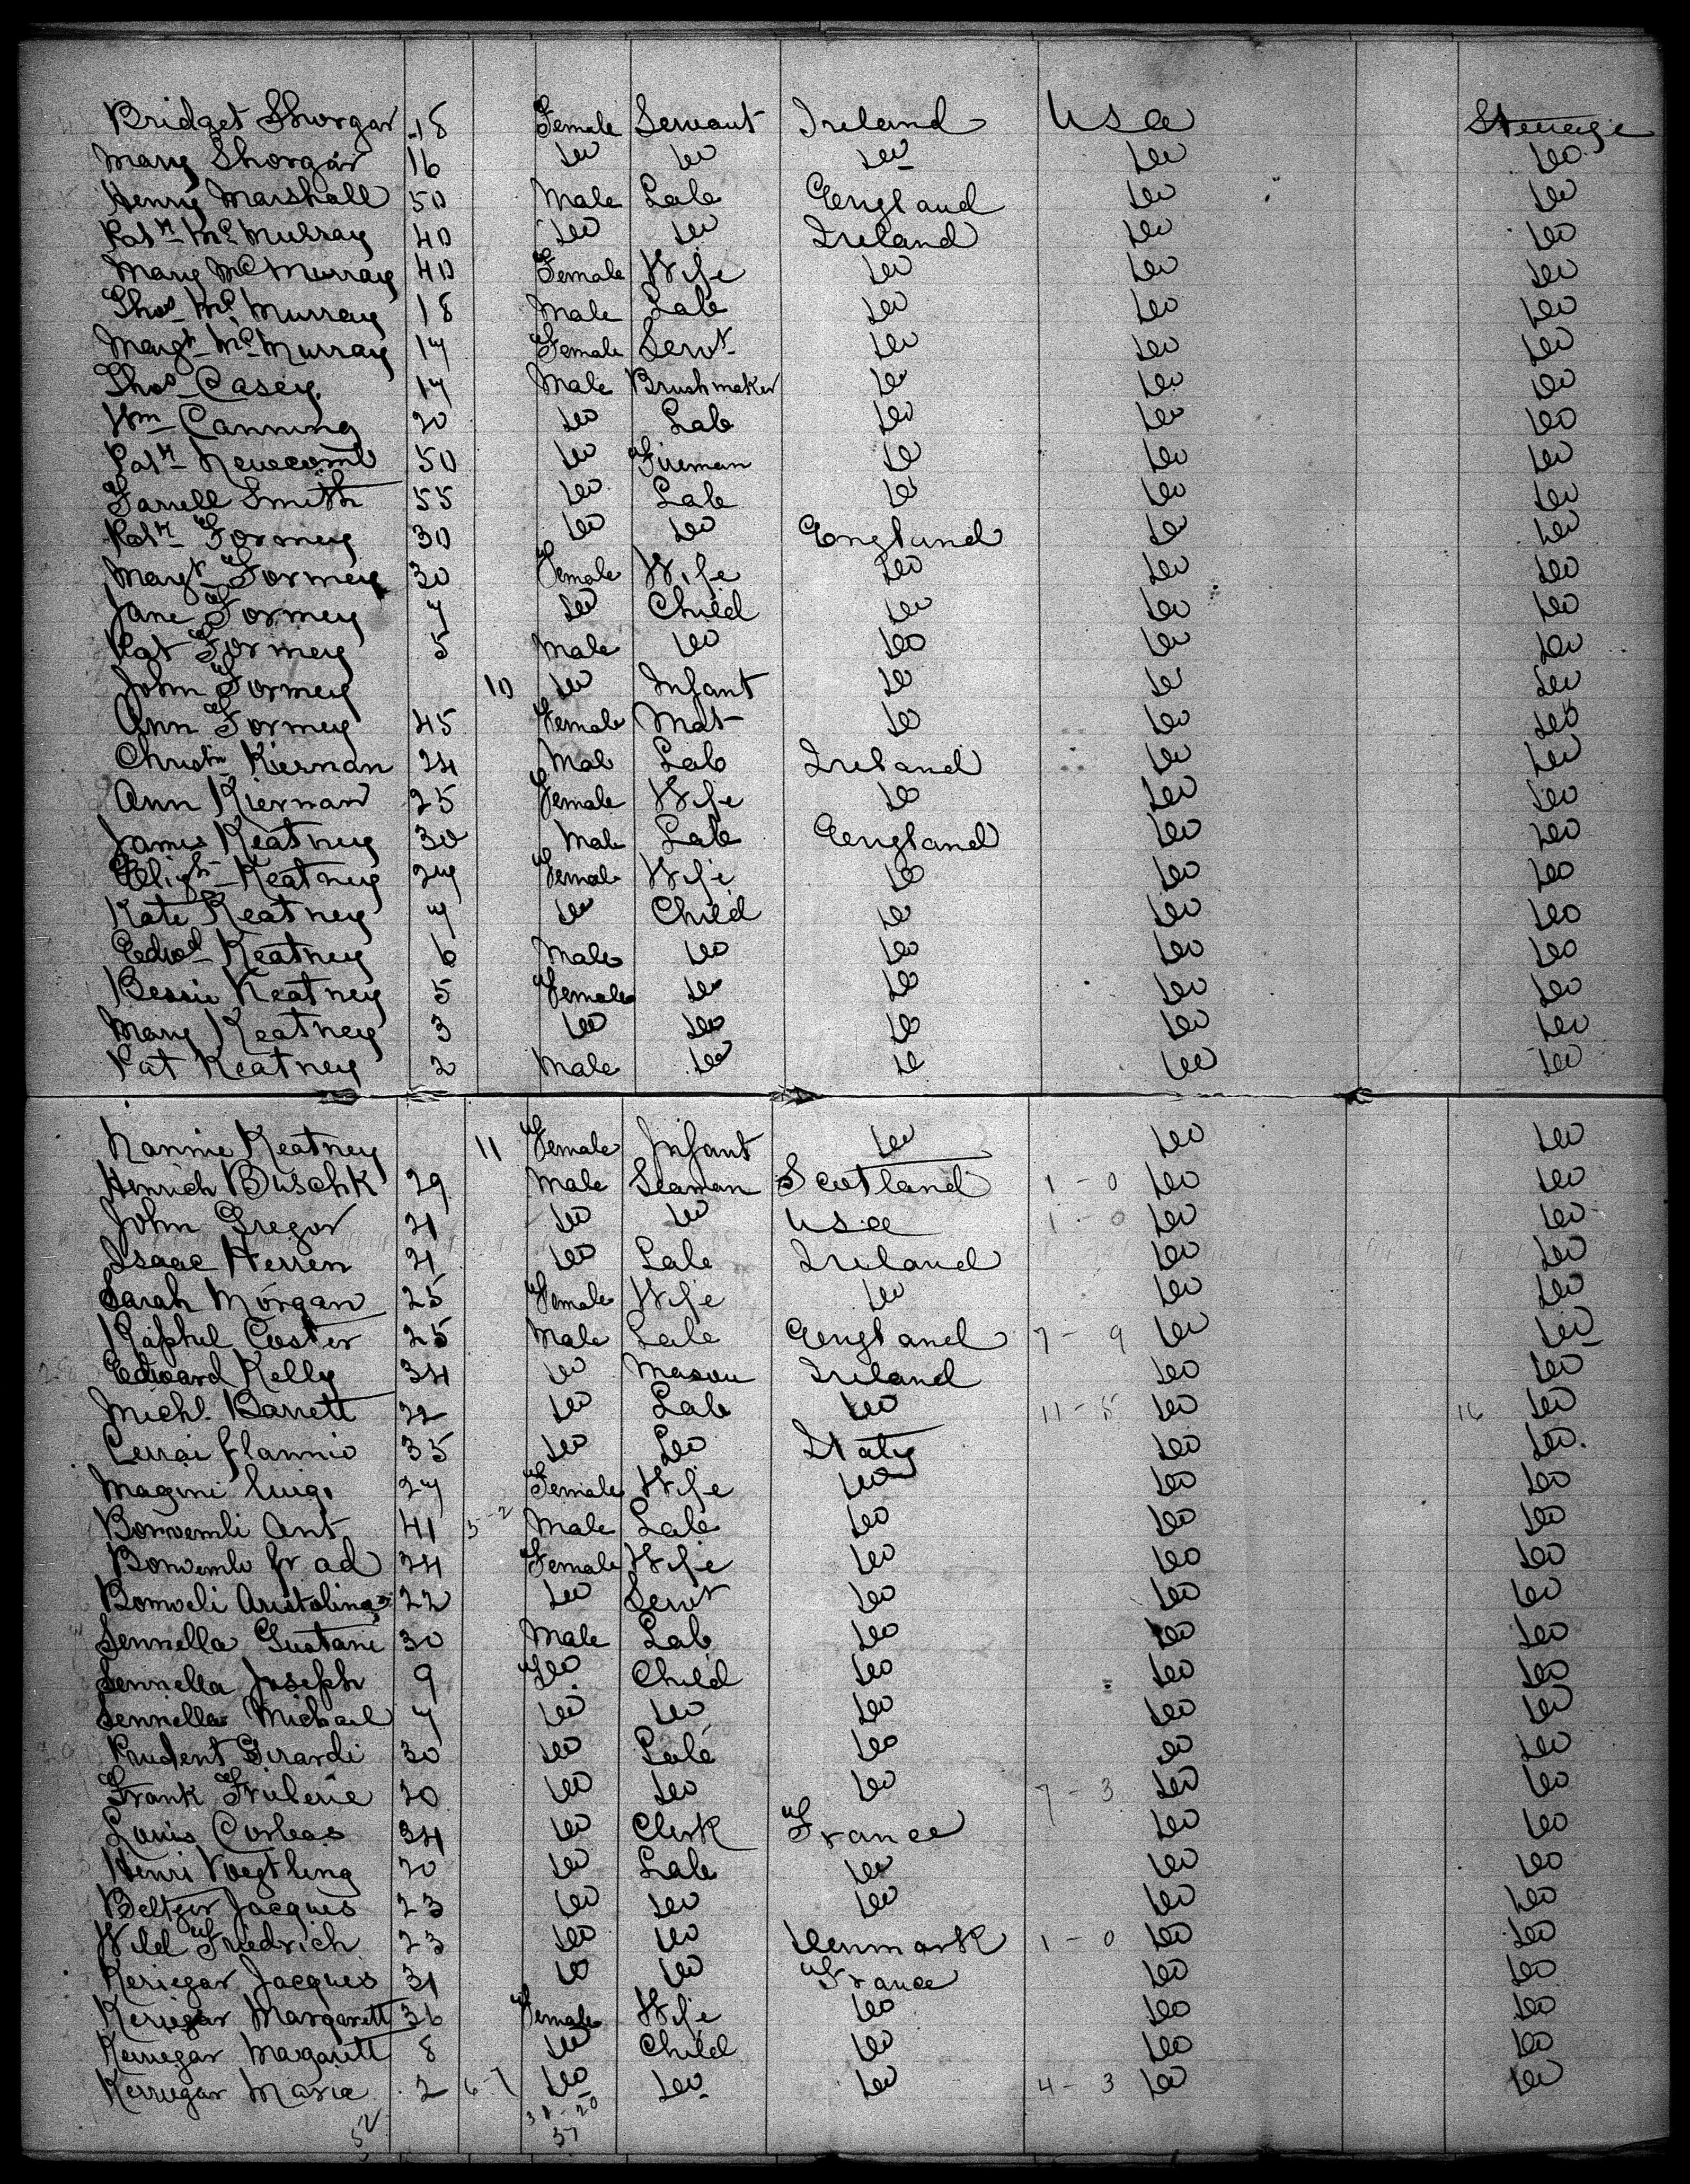 Bridget Shorgar 18 Female Servant Ireland USA Steerage
Mary Shorgar 16 Do Do Do Do Do
Henry Marshall 50 Male Lab England Do Do
Patk McMurray 40 Do Do Ireland Do Do
Mary McMurray 40 Female Wife Do Do Do
Thos McMurray 18 Male Lab Do Do Do
Margt McMurray 17 Female Servt Do Do Do
Thos Casey 17 Male Brushmaker Do Do Do
Wm Canning 20 Do Lab Do Do Do
Patk Newcomb 50 Do Fireman Do Do Do
Farrell Smith 55 Do Lab Do Do Do
Patk Formey 30 Do Do England Do Do
Margt Formey 30 Female Wife Do Do Do
Jane Formey 7 Do Child Do Do Do
Pat Formey 5 Male Do Do Do Do
John Formey 10 Do Infant Do Do Do
Ann Formey 45 Female Mat Do Do Do
Christr Kiernan 24 Male Lab Ireland Do Do
Ann Kiernan 25 Female Wife Do Do Do
James Keatney 30 Male Lab England Do Do
Elizth Keatney 27 Female Wife Do Do Do
Kate Keatney 7 Do Child Do Do Do
Edwd Keatney 6 Male Do Do Do Do
Bessie Keatney 5 Female Do Do Do Do
Mary Keatney 3 Do Do Do Do Do
Pat Keatney 2 Male Do Do Do Do
Nannie Keatney 11 Female Infant Do Do Do
Henrich Buschk 29 Male Seaman Scotland 1 - 0 Do Do
John Gregor 21 Do Do USA 1 - 0 Do Do
Isaac Herren 21 Do Lab Ireland Do Do
Sarah Morgan 25 Female Wife Do Do Do
Raphel Coster 25 Male Lab England 7 - 9 Do Do
Edward Kelly 34 Do Mason Ireland Do Do
Michl. Barrett 22 Do Lab Do 11 - 5 Do 16 Do
Cerrai flannio 35 Do Do Italy Do Do
Magini luigi 27 Female Wife Do Do Do
Ant 41 5-2 Male Lab Do Do Do
34 Female Wife Do Do Do
Bonveli Aristolina 22 Do Servt Do Do Do
Sennella Gustani 30 Male Lab Do Do Do
Sennella Joseph 9 Do Child Do Do Do
Sennella Michael 7 Do Do Do Do Do
Prudent Girardi 30 Do Lab Do Do Do
Frank 20 Do Do Do 7 - 3 Do Do
Louis Corbeas 34 Do Clerk France Do Do
Henri Voegtling 20 Do Lab Do Do Do
Beltzer Jacques 23 Do Do Do Do Do
Will Friedrich 23 Do Do Denmark 1 - 0 Do Do
Keriegar Jacques 31 Do Do France Do Do
Keriegar Margarett 36 Female Wife Do Do Do
Kerriegar Magarett 8 Do Child Do Do Do
Kerriegar Maria 2 6-7 Do Do Do 4 - 3 Do Do
52 31-20